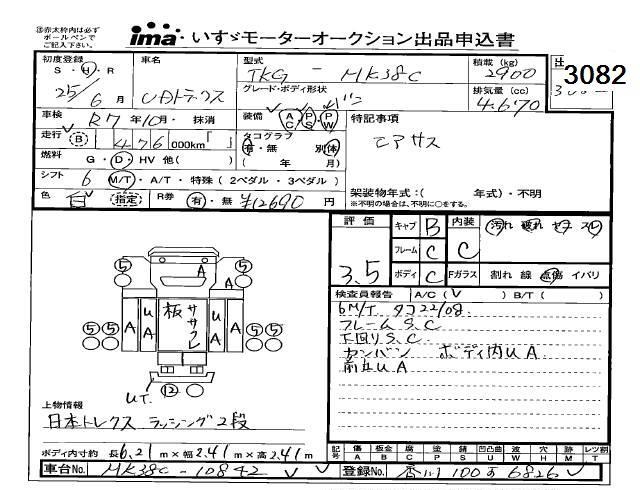 ㊟赤太枠内は必ず
ボールペンで
ご記入下さい。
ima・いすゞモーターオークション出品申込書
初度登録 車名 型式 積載 (kg)
S・H・R UDトラックス TKG - MK38C 2900
25年 6月 グレード・ボディ形状 バン 排気量 (cc)
4.670
3082
車検 R7年10月・抹消 装備 AC PS PW 特記事項
走行 B 476 000km タコグラフ エアサス
有・無 別体
燃料 G・D・HV 他( ) ( 年 月)
シフト 6 M/T・A/T・特殊(2ペダル・3ペダル) 架装物年式:( 年式)・不明
色 白 指定 R券 有・無 ¥12690円 ※不明の場合は、不明に○をする。
評価 キャブ B 内装 汚れ 破れ ヤコ スレ
フレーム C C
3.5 ボディ C Fガラス 割れ 線 点傷 イバリ
検査員報告 A/C(V) B/T( )
6M/T タコ22/08.
フレームS.C
下回りS.C
カンバン ボディ内UA
前立UA
5 A 5
5 5 A UA 板 ササクレ UA A 5 5
UT. 12
上物情報
日本トレクス ラッシング2段
ボディ内寸約 長6.21m×幅2.41m×高2.41m
記号 傷 板金 補 塗 錆 凹凸曲 波 穴 跡 レツ割
A B C P S U W H M T
車台No. MK38C-10842 登録No. 香川 100 す 6826